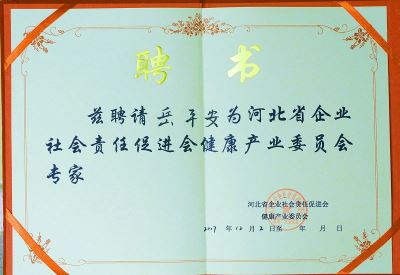 聘书
兹聘请岳平安为河北省企业
社会责任促进会健康产业委员会
专家
河北省企业社会责任促进会
健康产业委员会
2017 年 12 月 2 日至 年 月 日